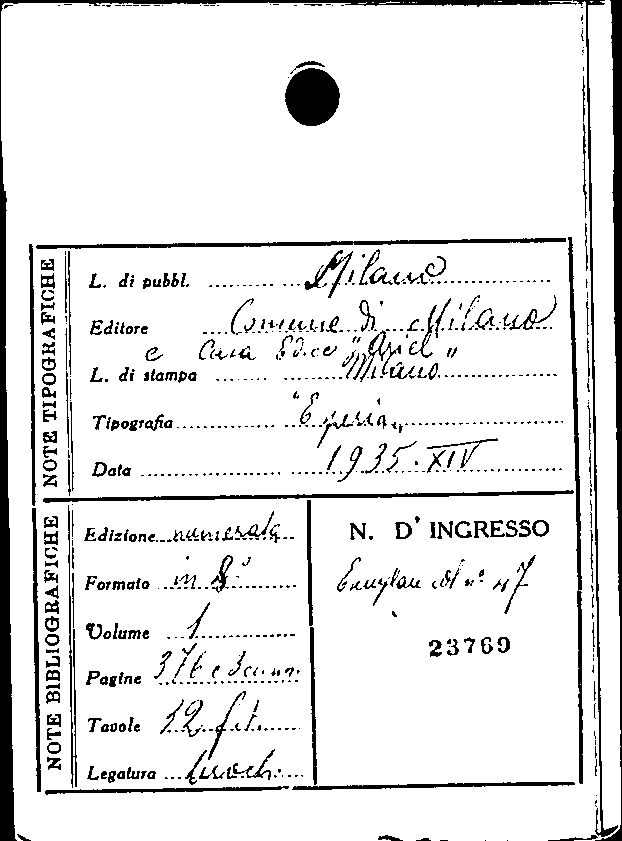 NOTE TIPOGRAFICHE
L. di pubbl. Milano
Editore Comune di Milano
e Casa Ed.ce "Ariel"
L. di stampa Milano
Tipografia "Esperia"
Data 1935. XIV
NOTE BIBLIOGRAFICHE
Edizione numerata
Formato in 8°
Volume 1
Pagine 376 e 3
Tavole 12 f.t.
Legatura broch.
N. D' INGRESSO
n° 47
23769